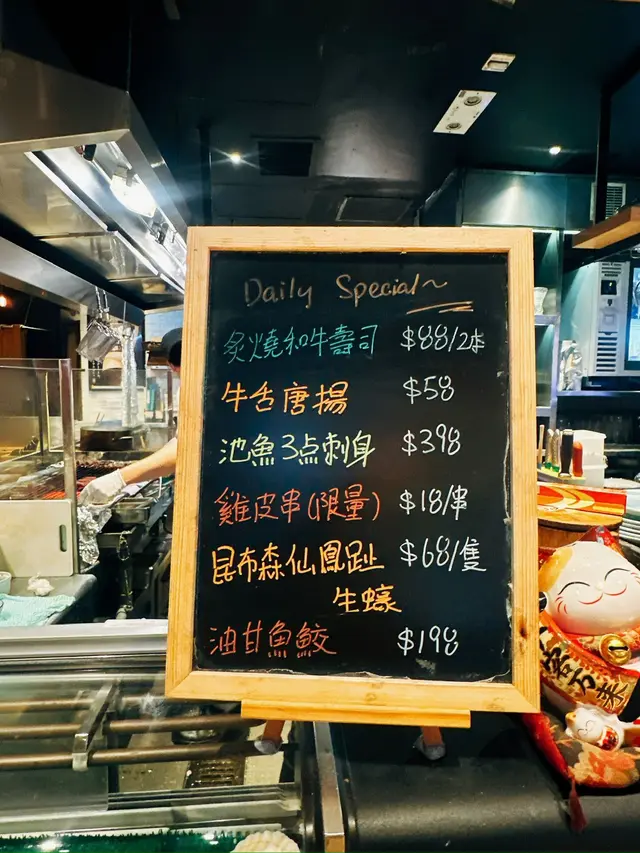 Daily Special~
炙燒和牛壽司 $88/2本
牛舌唐揚 $58
池魚3点刺身 $398
雞皮串(限量) $18/串
昆布森仙鳳趾 $68/隻
生蠔
油甘魚鮫 $198